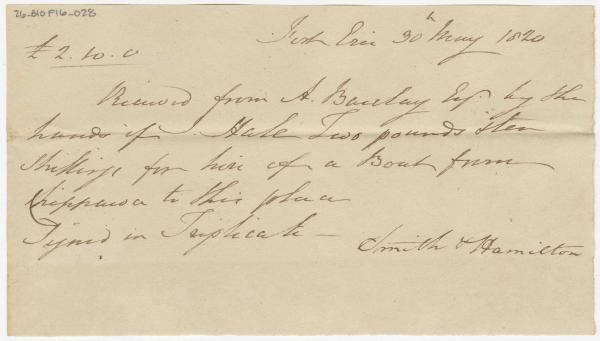 26-B10 F16-028
Fort Erie 30th May 1820
£ 2.10.0
Received from A. Barclay Esq. by the
hands of Hale Two pounds ten
Shillings for hire of a Boat from
Chippawa to this place
Signed in Triplicate —
Smith & Hamilton